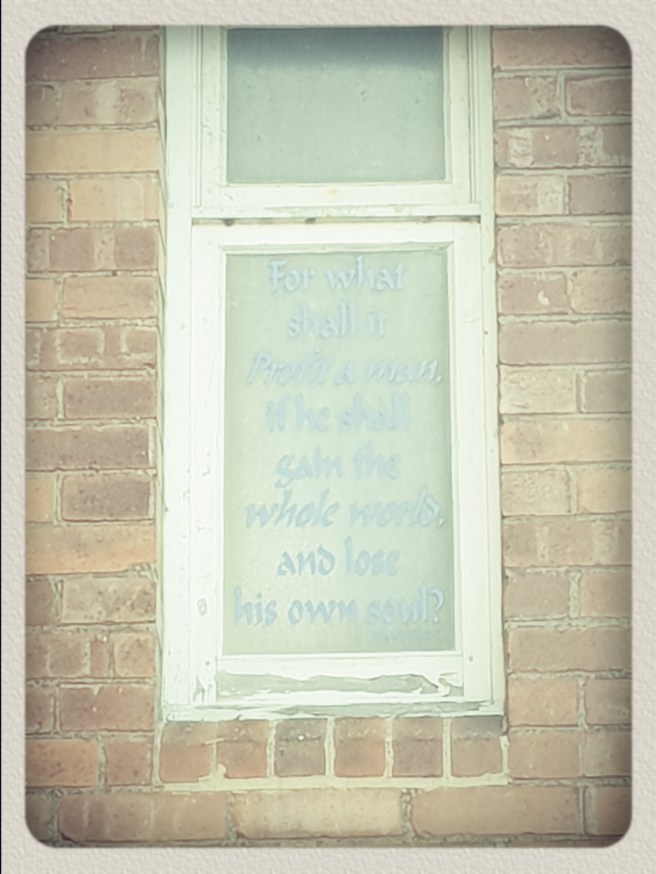 For what
shall it
Profit a man,
if he shall
gain the
whole world,
and lose
his own soul?